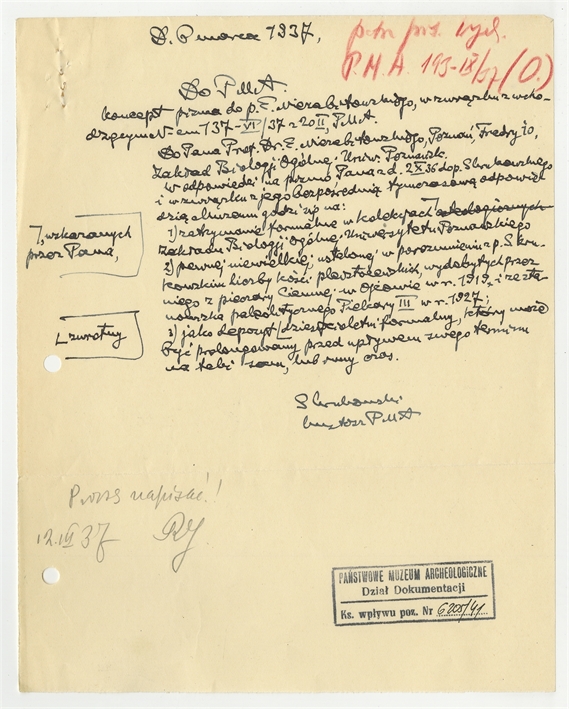 D. 8 marca 1937,
P.M.A. 193-IX/37 (O.)
Do PMA.
koncept pisma do p. E. Niezabitowskiego, w związku z wcho-
dzącym N-em 137-VI/37 z 20 II, PMA.
Do Pana Prof. Dr. E. Niezabitowskiego, Poznań, Fredry 10,
Zakład Biologji Ogólnej, Uniw. Poznańsk.
W odpowiedzi na pismo Pana z d. 2 X 36 do p. S. Krukowskiego
i w związku z jego bezpośrednią tymczasową odpowie-
dzią a Muzeum godzi się na:
1) zatrzymanie formalne w kolekcjach
Zakładu Biologji Ogólnej Uniwersytetu Poznańskiego
7, wskazanych
przez Pana,
2) pewnej niewielkiej, ustalonej w porozumieniu z p. S. Kru-
kowskim liczby kości plejstoceńskich, wydobytych przez
niego z pieczary Ciemnej w Ojcowie w r. 1919, i ze sta-
nowiska paleolitycznego Piekary III w r. 1927;
L zwrotny
3) jako depozyt L dziesięcioletni formalny, który może
być prolongowany przed upływem swego terminu
na taki sam, lub inny czas.
S Krukowski
kustosz PMA
Proszę napisać!
12.III 37 RJ
PAŃSTWOWE MUZEUM ARCHEOLOGICZNE
Dział Dokumentacji
Ks. wpływu poz. Nr 6205/41